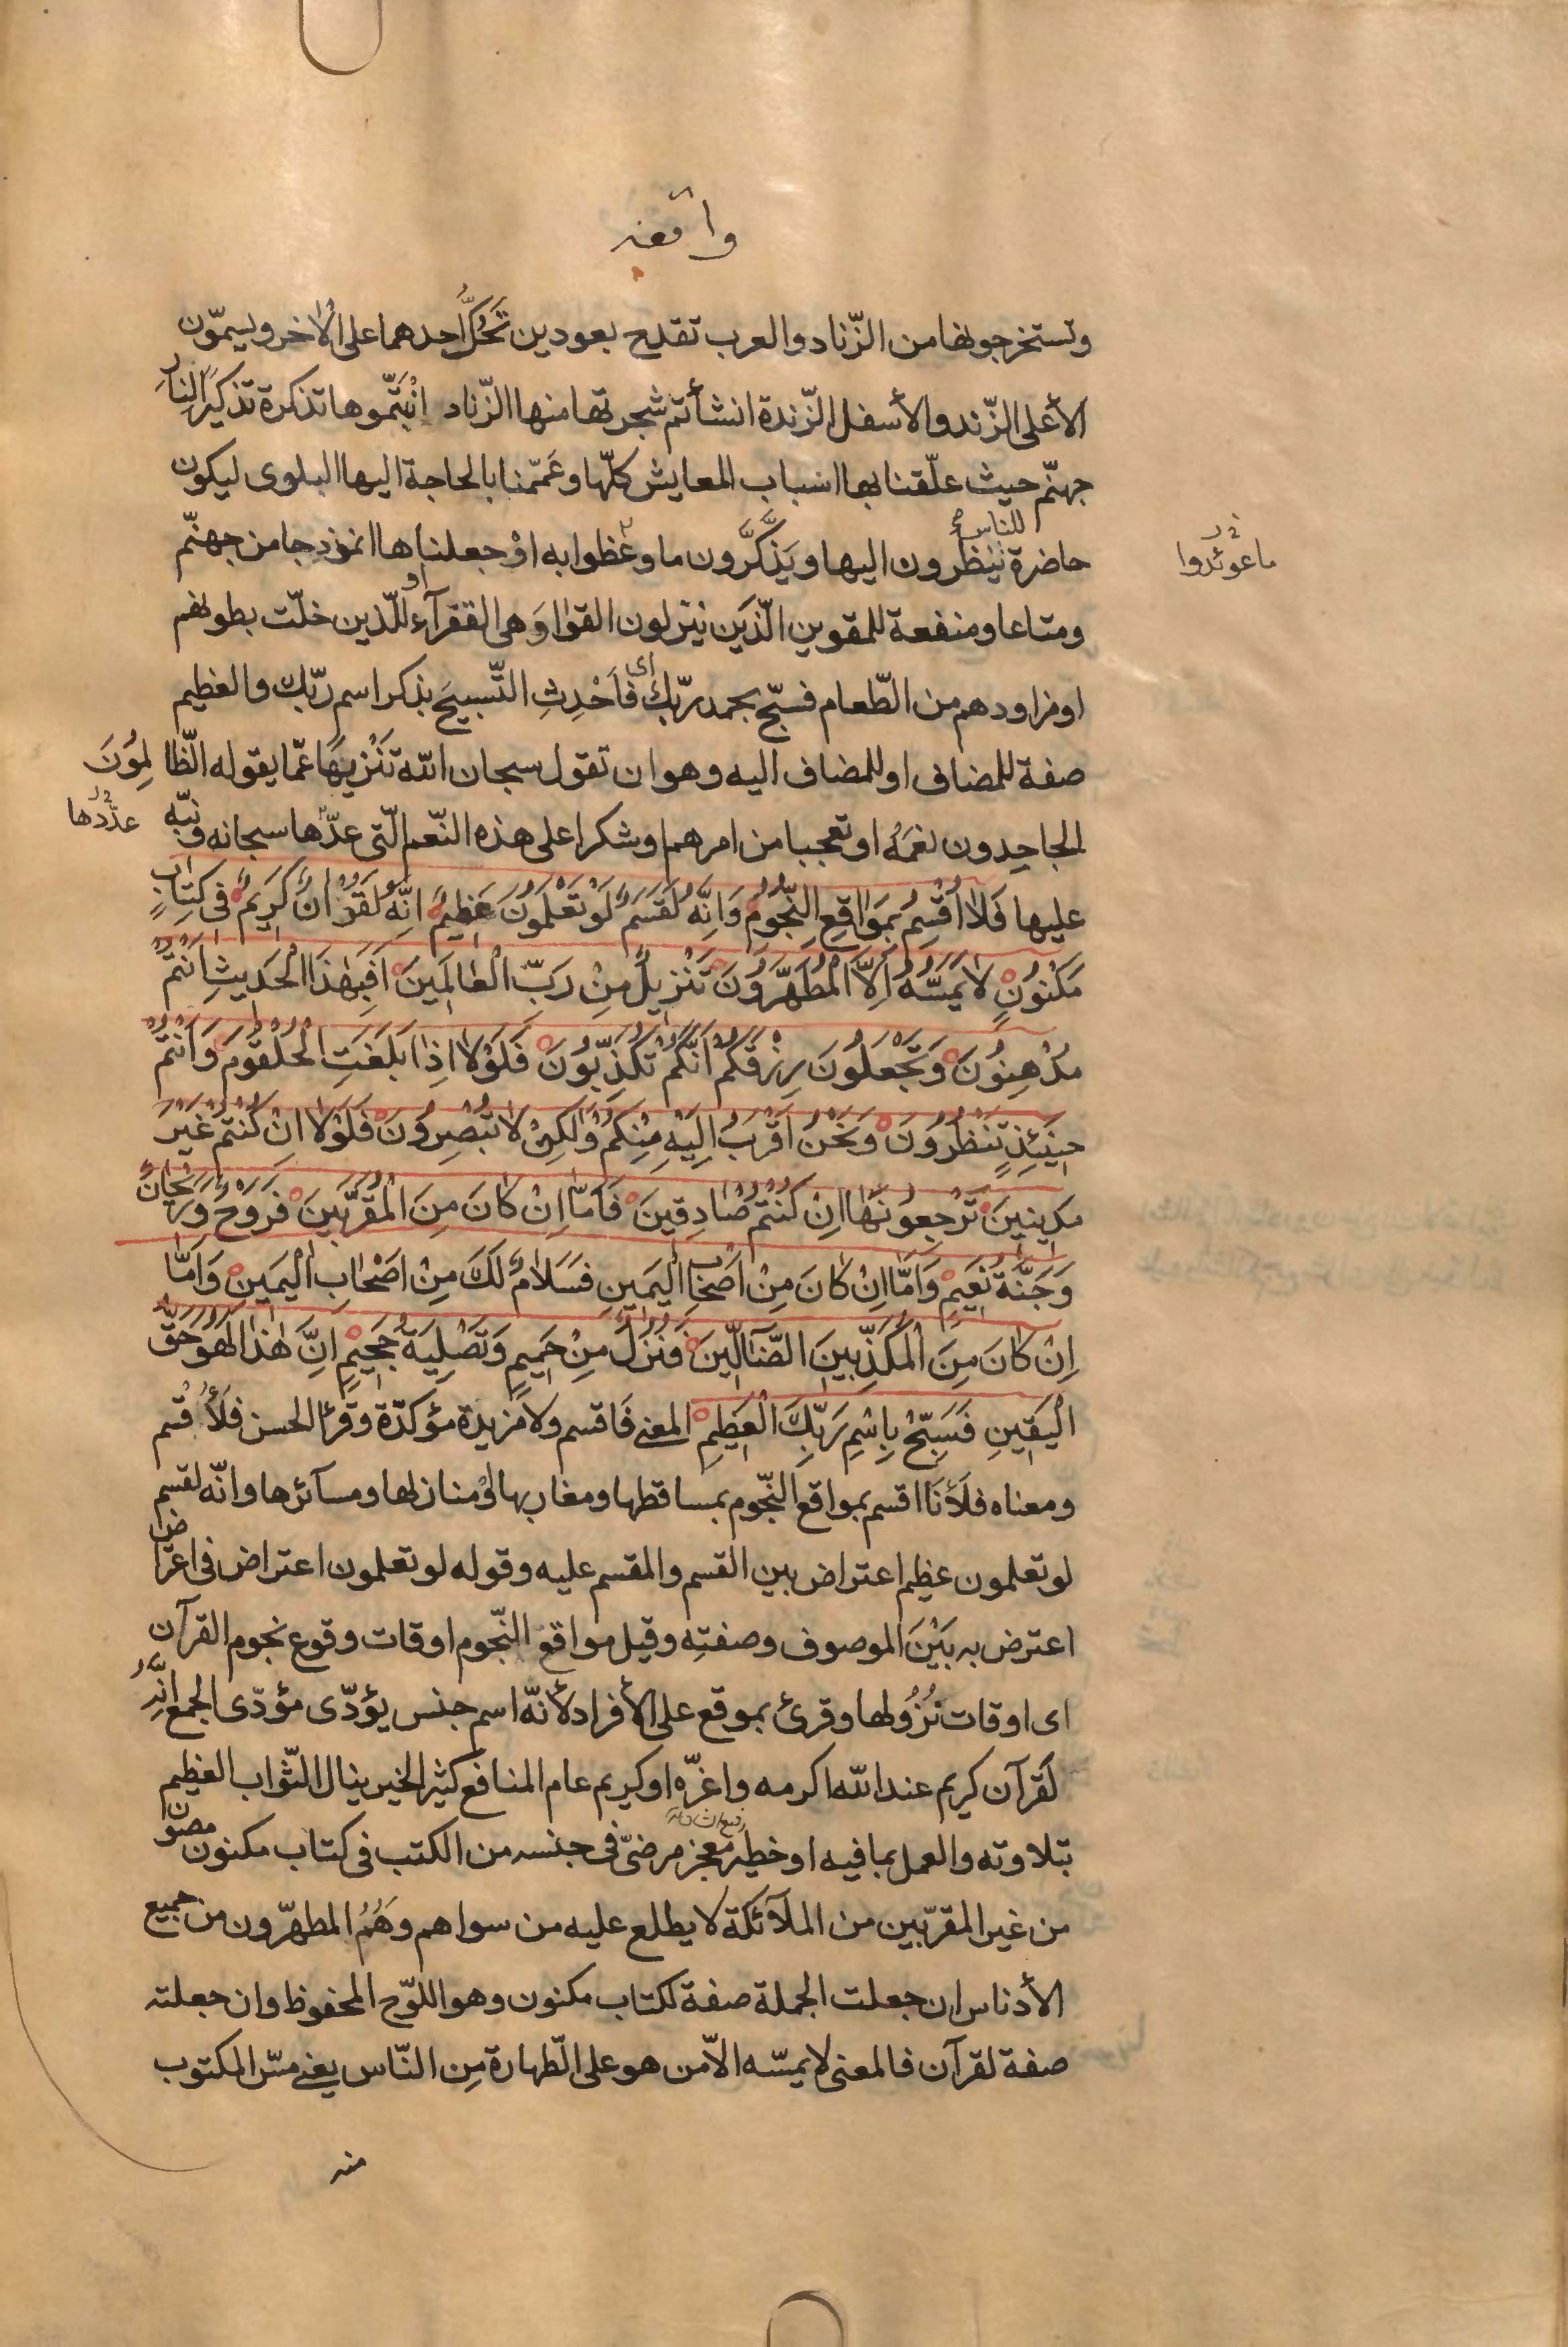 واقعه
وتستخرجونها من الزّناد والعرب تقدح بعودين تَحُكُّ احدهما على الاٰخر ويسمّون
الأعلى الزّند والأسفل الزّندة انشأتم شجرتها منها الزّناد انْبَتُّموها تذكرة تذكيرًا لِنارِ
جهنّم حيث علّقنا بها اسباب المعايش كلّها وعَمّمنا بالحاجة اليها البلوى ليكون
للناس
حاضرة ينظرون اليها ويَذَّكَّرون ما وعظوا به اوْ جعلناها انموذجا من جهنّم
ما عوئدوا
ومتاعا ومنفعة للمقوين الّذين ينزلون القوٰا وَهى القفرآء او للّذين خلّت بطونهم
اومزاودهم من الطّعام فسبّح بحمد ربّك اى فاَحْدِثِ التّسبيحَ بذكر اسم ربّك والعظيم
صفة للمضاف او للمضاف اليه وهو ان تقول سبحان الله تَنْزيهًا عمّا يقوله الظّالِمُونَ
الجاحِدون نعَمَهُ او تعجبا من امرهم او شكرا على هذه النّعم الّتى عدّها سبحانه ونبّه
عدّدها
عليها فَلاٰ اُقْسِمُ بِمَوٰاقِعِ النُّجُومِ وَاِنَّهُ لَقَسَمٌ لَوْ تَعْلَمُونَ عَظِيمٌ اِنَّهُ لَقُرْاٰنٌ كَرِيمٌ فِى كِتٰابٍ
مَكْنُونٍ لاٰ يَمَسُّهُ اِلاَّ الْمُطَهَّرُونَ تَنْزِيلٌ مِنْ رَبِّ الْعٰالَمِينَ اَفَبِهٰذَا الْحَدِيثِ اَنْتُمْ
مُدْهِنُونَ وَتَجْعَلُونَ رِزْقَكُمْ اَنَّكُمْ تُكَذِّبُونَ فَلَوْلاٰ اِذٰا بَلَغَتِ الْحُلْقُومَ وَاَنْتُمْ
حِينَئِذٍ تَنْظُرُونَ وَنَحْنُ اَقْرَبُ اِلَيْهِ مِنْكُمْ وَلٰكِنْ لاٰ تُبْصِرُونَ فَلَوْلاٰ اِنْ كُنْتُمْ غَيْرَ
مَدِينِينَ تَرْجِعُونَهٰا اِنْ كُنْتُمْ صٰادِقِينَ فَاَمّٰا اِنْ كٰانَ مِنَ الْمُقَرَّبِينَ فَرَوْحٌ وَرَيْحٰانٌ
وَجَنَّةُ نَعِيمٍ وَاَمّٰا اِنْ كٰانَ مِنْ اَصْحٰابِ الْيَمِينِ فَسَلاٰمٌ لَكَ مِنْ اَصْحٰابِ الْيَمِينِ وَاَمّٰا
اِنْ كٰانَ مِنَ الْمُكَذِّبِينَ الضّٰالِّينَ فَنُزُلٌ مِنْ حَمِيمٍ وَتَصْلِيَةُ جَحِيمٍ اِنَّ هٰذٰا لَهُوَ حَقُّ
الْيَقِينِ فَسَبِّحْ بِاسْمِ رَبِّكَ الْعَظِيمِ المعنى فَاقسم ولا مزيدة مؤكدّة وقرئ الحسن فلَأُ قْسم
ومعناه فلَأنَا اقسم بمواقع النّجوم بمساقطها ومغاربها اوْ منازلها ومسآئرها وانّه لقسم
لو تعلمون عظيم اعتراض بين القسم والمقسم عليه وقوله لو تعلمون اعتراض فى اعتراض
اعترض به بَيْنَ الموصوف وصفتِه وقيل مواقع النّجوم اوقات وقوع نجوم القرآن
اى اوقات نُزُولها وقرئ بموقع على الأفراد لأنّه اسم جنس يؤدّى مؤدّى الجمع اِنَّهُ
لَقرآن كريم عند الله اكرمه واعزّه او كريم عام المنافع كثير الخير ينال الثّواب العظيم
بتلاوته والعمل بما فيه او خطير معجز مرضىّ فى جنسه من الكتب فى كتاب مكنون مصون
من غير المقرّبين من الملآئكة لا يطلع عليه من سواهم وهُمُ المطهّرون من جميع
الأدناس ان جعلت الجملة صفة لكتاب مكنون وهو اللوّح المحفوظ وان جعلته
صفة لقرآن فالمعنى لا يمسّه الاّ من هو على الّطهارة مِن النّاس يعنى مسّ المكتوب
منه